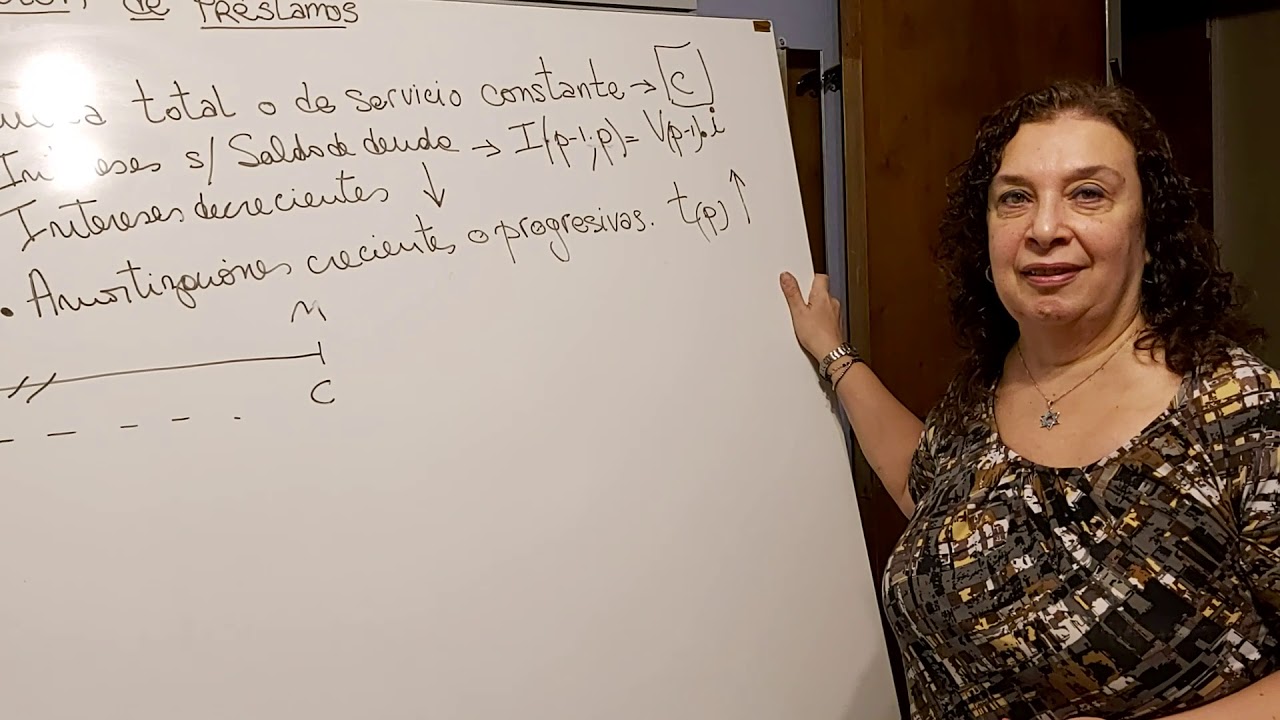 de PRÉSTAMOS
total o de servicio constante → C
Intereses s/ Saldo de deuda → I(p-1;p) = V(p-1).i
Intereses decrecientes ↓
• Amortizaciones crecientes o progresivas. t(p) ↑
n
C